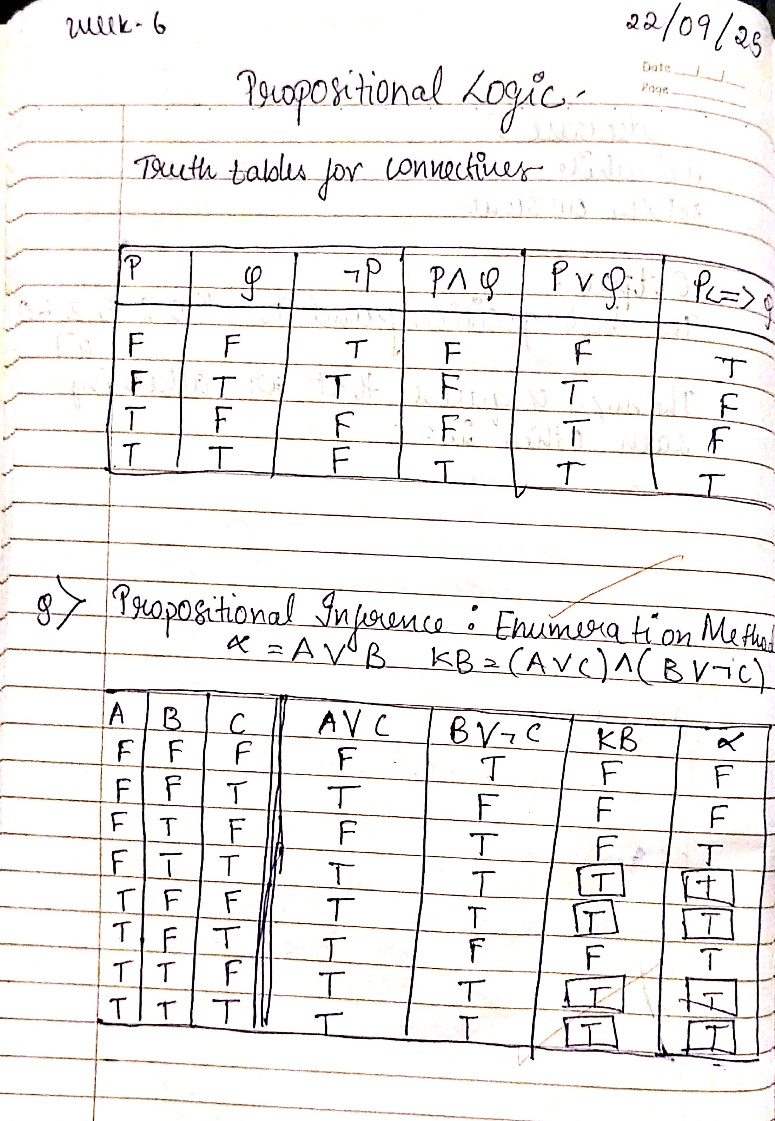 week-6
22/09/25
Date
Page
Propositional Logic-
Truth tables for connectives
P Q ¬P P∧Q P∨Q P<=>Q
F F T F F T
F T T F T F
T F F F T F
T T F T T T
Q> Propositional Inference : Enumeration Method
α = A V B KB = (A V C) ∧ (B V ¬C)
A B C A V C B V ¬ C KB α
F F F F T F F
F F T T F F F
F T F F T F T
F T T T T T T
T F F T T T T
T F T T F F T
T T F T T T T
T T T T T T T